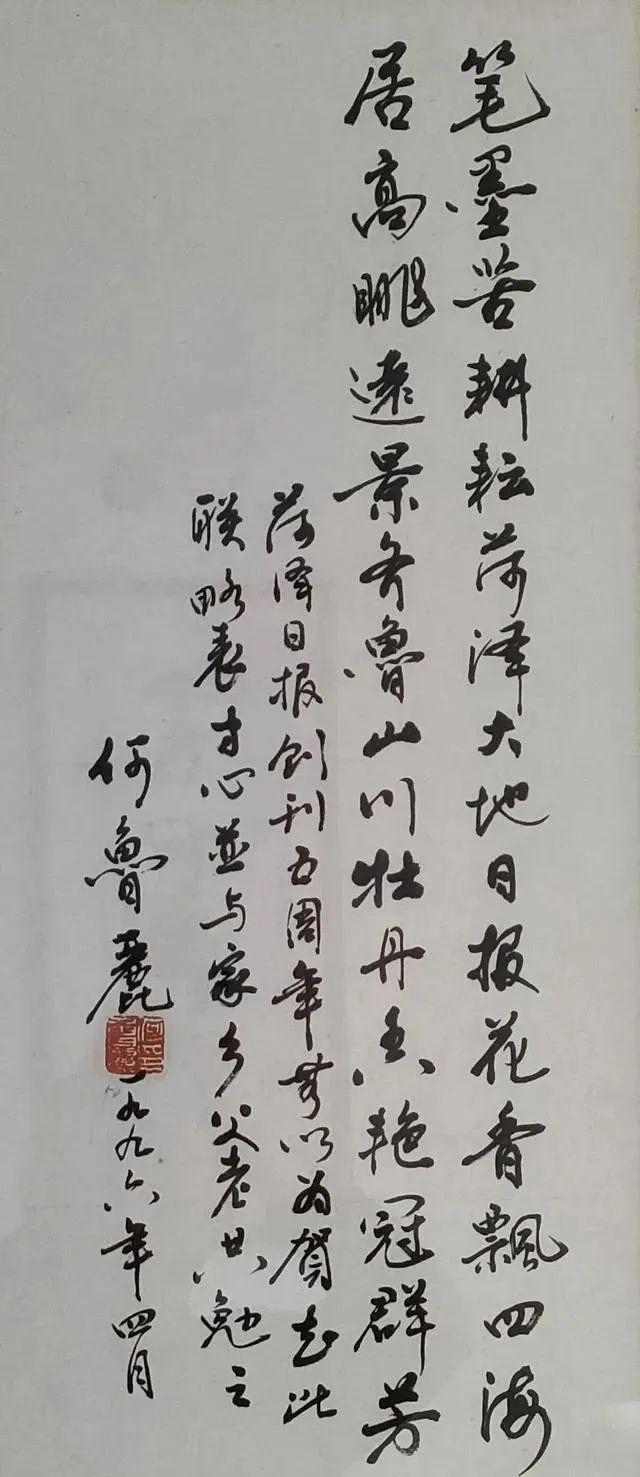 笔墨苦耕耘菏泽大地日报花香飄四海
居高眺遠景齐魯山川牡丹艳冠群芳
菏泽日报创刊五周年無以为賀书此
联略表寸心並与家乡父老共勉之
何魯麗 一九九六年四月